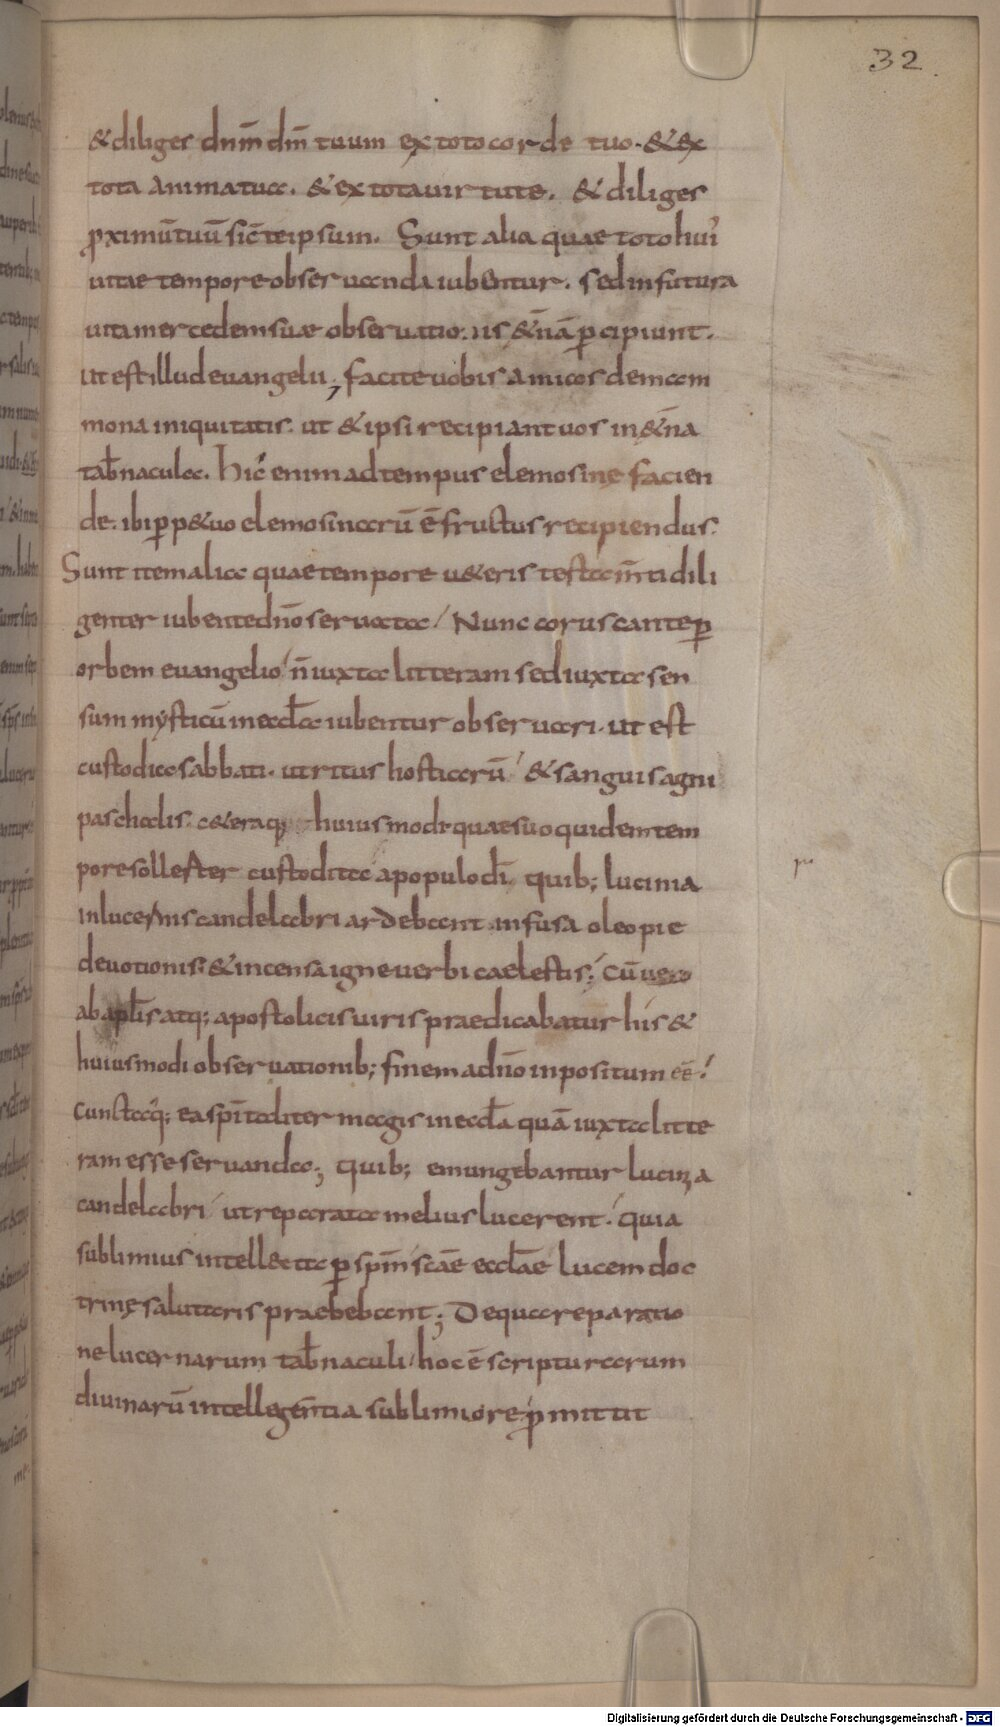 32
& diliges dnm̄ dm̄ tuum ex toto corde tuo. & ex
tota anima tua. & ex tota uirtute. & diliges
proximū tuū sic̄ teipsum. Sunt alia quae toto hui'
uitae tempore obseruanda iubentur. sed in futura
uita mercedem suae obseruatio.. nis &̄nā ꝑcipiunt.
ut est illud euangelii; facite uobis amicos de mam
mona iniquitatis. ut & ipsi recipiant uos in &̄na
tab̄nacula. hic enim ad tempus elemosinę facien
de. ibi ꝑp&uo elemosinarū ē fructus recipiendus.
Sunt item alia quae tempore u&eris testam̄ti dili
genter iubente dn̄o seruata / Nunc coruscante ꝑ
orbem euangelio / n̄ iuxta litteram sed iuxta sen
sum mysticū in eccl̄a iubentur obseruari. ut est
custodia sabbati. ut ritus hostiarū / & sanguis agni
paschalis. c&eraq; huiusmodi quae suo quidem tem
pore sollerter custodita a populo dī. quib; lumina
in lucernis candelabri ardebant infusa oleo pie
deuotionis. & incensa igne uerbi caelestis; Cū uero
ab apl̄is atq; apostolicis uiris praedicabatur his &
huiusmodi obseruationib; finem a dn̄o inpositum eē.
cunctaq; ea sp̄italiter magis in eccl̄a quā iuxta litte
ram esse seruanda; quib; emungebantur lucerna
candelabri / ut reparata melius lucerent. quia
sublimius intellecta ꝑ sp̄m sc̄ae eccl̄ae lucem doc
trinę salutaris praebebant; De qua reparatio
ne lucernarum tab̄naculi / hoc ē scripturarum
diuinarū intellegentia sublimiore p̄mittit